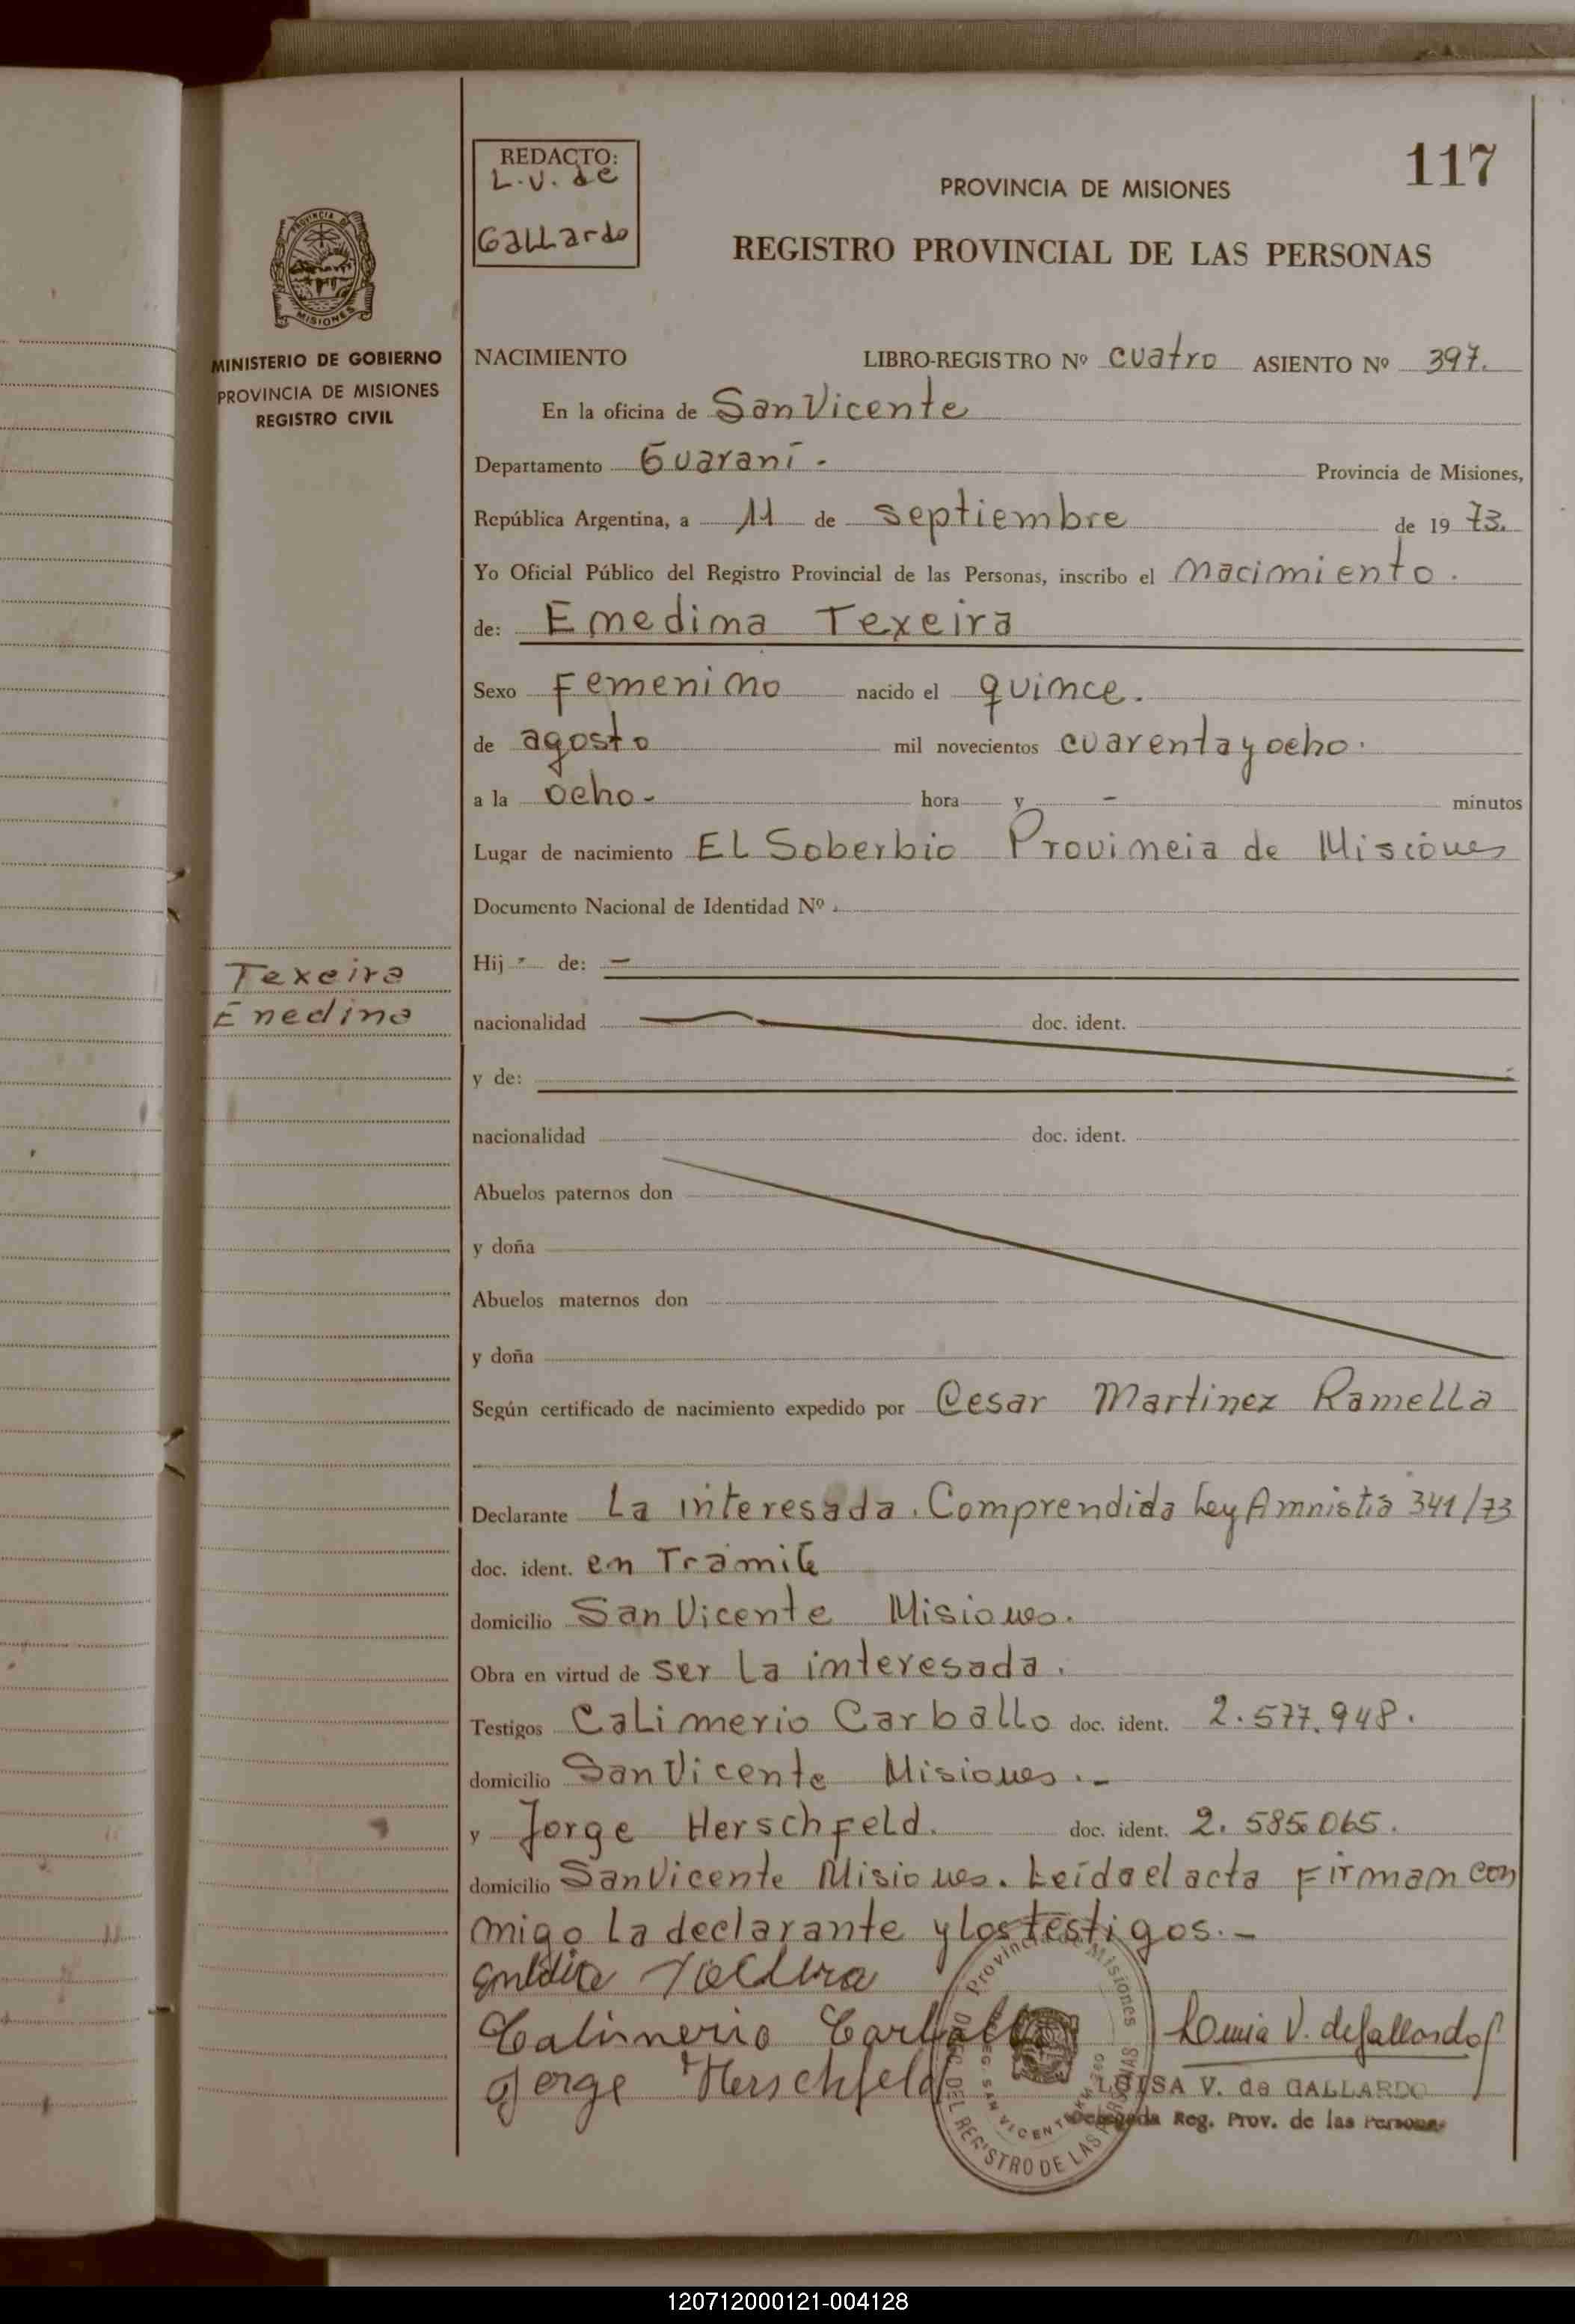 117
REDACTO:
L.V. de
Gallardo
PROVINCIA DE MISIONES
REGISTRO PROVINCIAL DE LAS PERSONAS
PROVINCIA DE
MISIONES
MINISTERIO DE GOBIERNO
PROVINCIA DE MISIONES
REGISTRO CIVIL
NACIMIENTO LIBRO-REGISTRO Nº cuatro ASIENTO Nº 397.
En la oficina de San Vicente
Departamento Guaraní - Provincia de Misiones,
República Argentina, a 11 de septiembre de 1973.
Yo Oficial Público del Registro Provincial de las Personas, inscribo el nacimiento.
de: Enedina Texeira
Sexo Femenino nacido el quince.
de agosto mil novecientos cuarenta y ocho.
a la ocho - hora y - minutos
Lugar de nacimiento El Soberbio Provincia de Misiones
Documento Nacional de Identidad Nº
Hij - de: -
Texeira
Enedina
nacionalidad doc. ident.
y de:
nacionalidad doc. ident.
Abuelos paternos don
y doña
Abuelos maternos don
y doña
Según certificado de nacimiento expedido por Cesar Martinez Ramella
Declarante La interesada. Comprendida Ley Amnistia 341/73
doc. ident. en Tramite
domicilio San Vicente Misiones.
Obra en virtud de ser La interesada.
Testigos Calimerio Carballo doc. ident. 2.577.948.
domicilio San Vicente Misiones.-
y Jorge Herschfeld. doc. ident. 2.585.065.
domicilio San Vicente Misiones. Leída el acta firman con
migo la declarante y los testigos.-
Calimerio Carballo
Jorge Herschfeld
Luisa V. de Gallardo
LUISA V. de GALLARDO
Delegada Reg. Prov. de las Personas
Provincia de Misiones
DEL REGISTRO DE LAS PERSONAS
SAN VICENTE
120712000121-004128